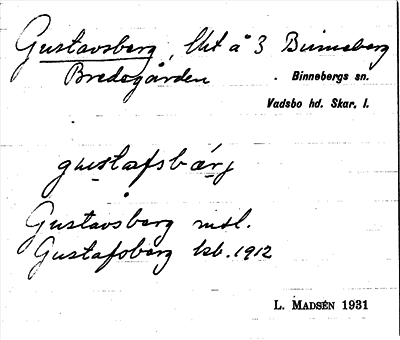 Gustavsberg, lht å 3 Binneberg
Bredegården
Binnebergs sn.
Vadsbo hd. Skar. l.
gustafsbærj
Gustavsberg mtl.
Gustafsberg ksb. 1912
L. MADSÉN 1931